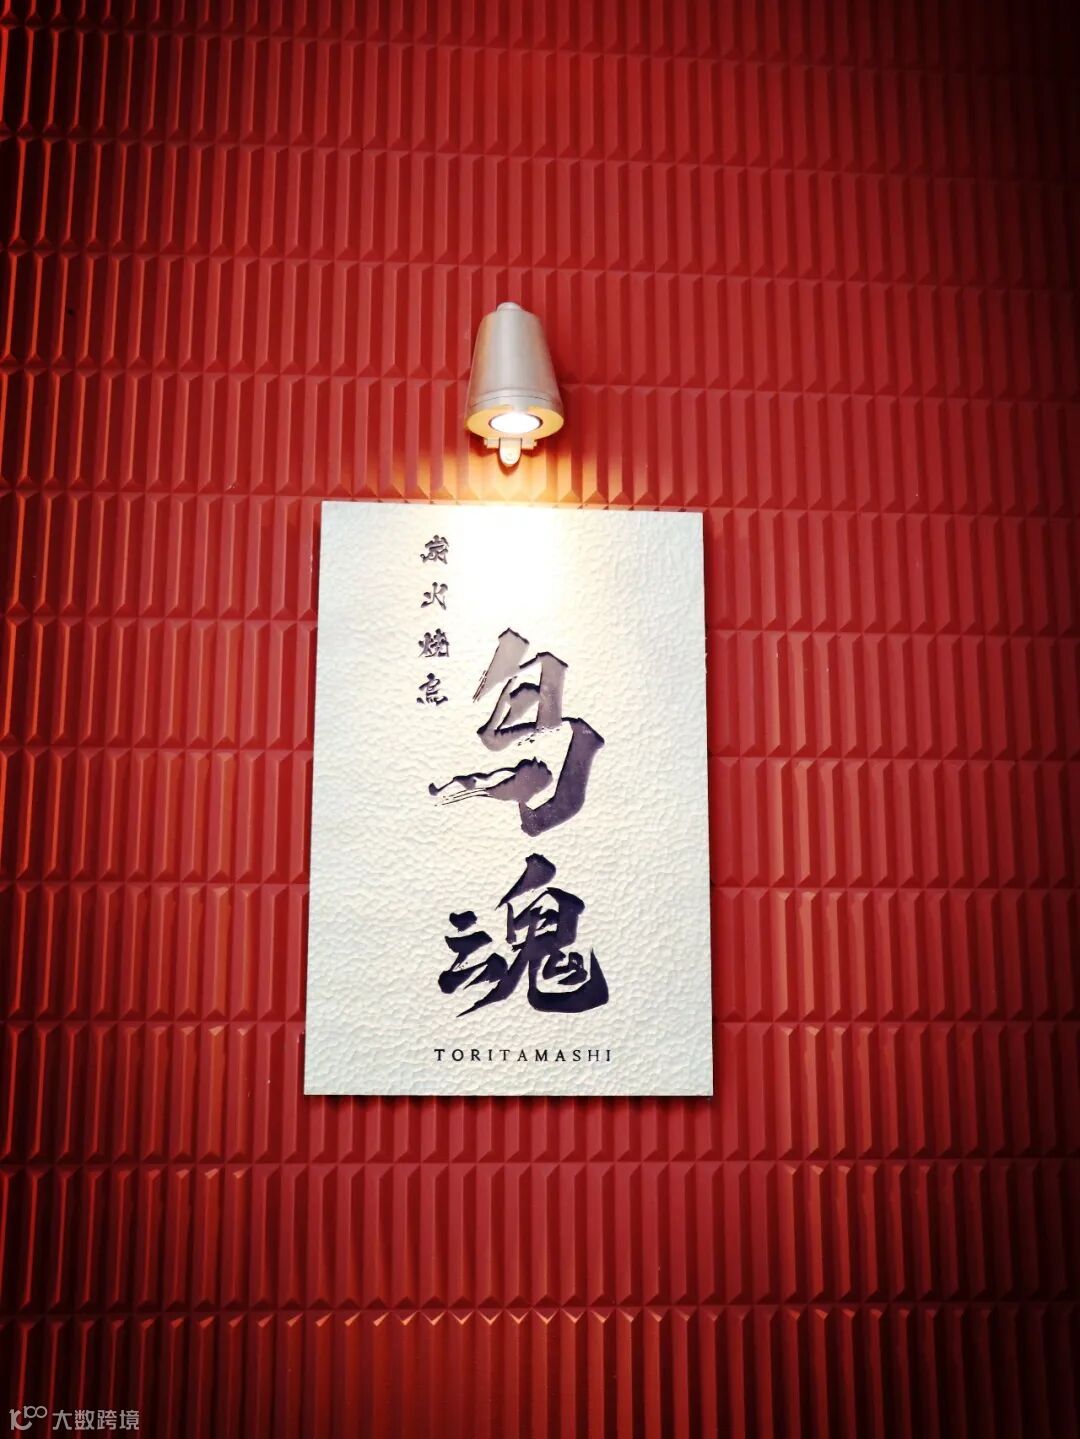 炭火烧鸟
鸟魂
TORITAMASHI
大数跨境